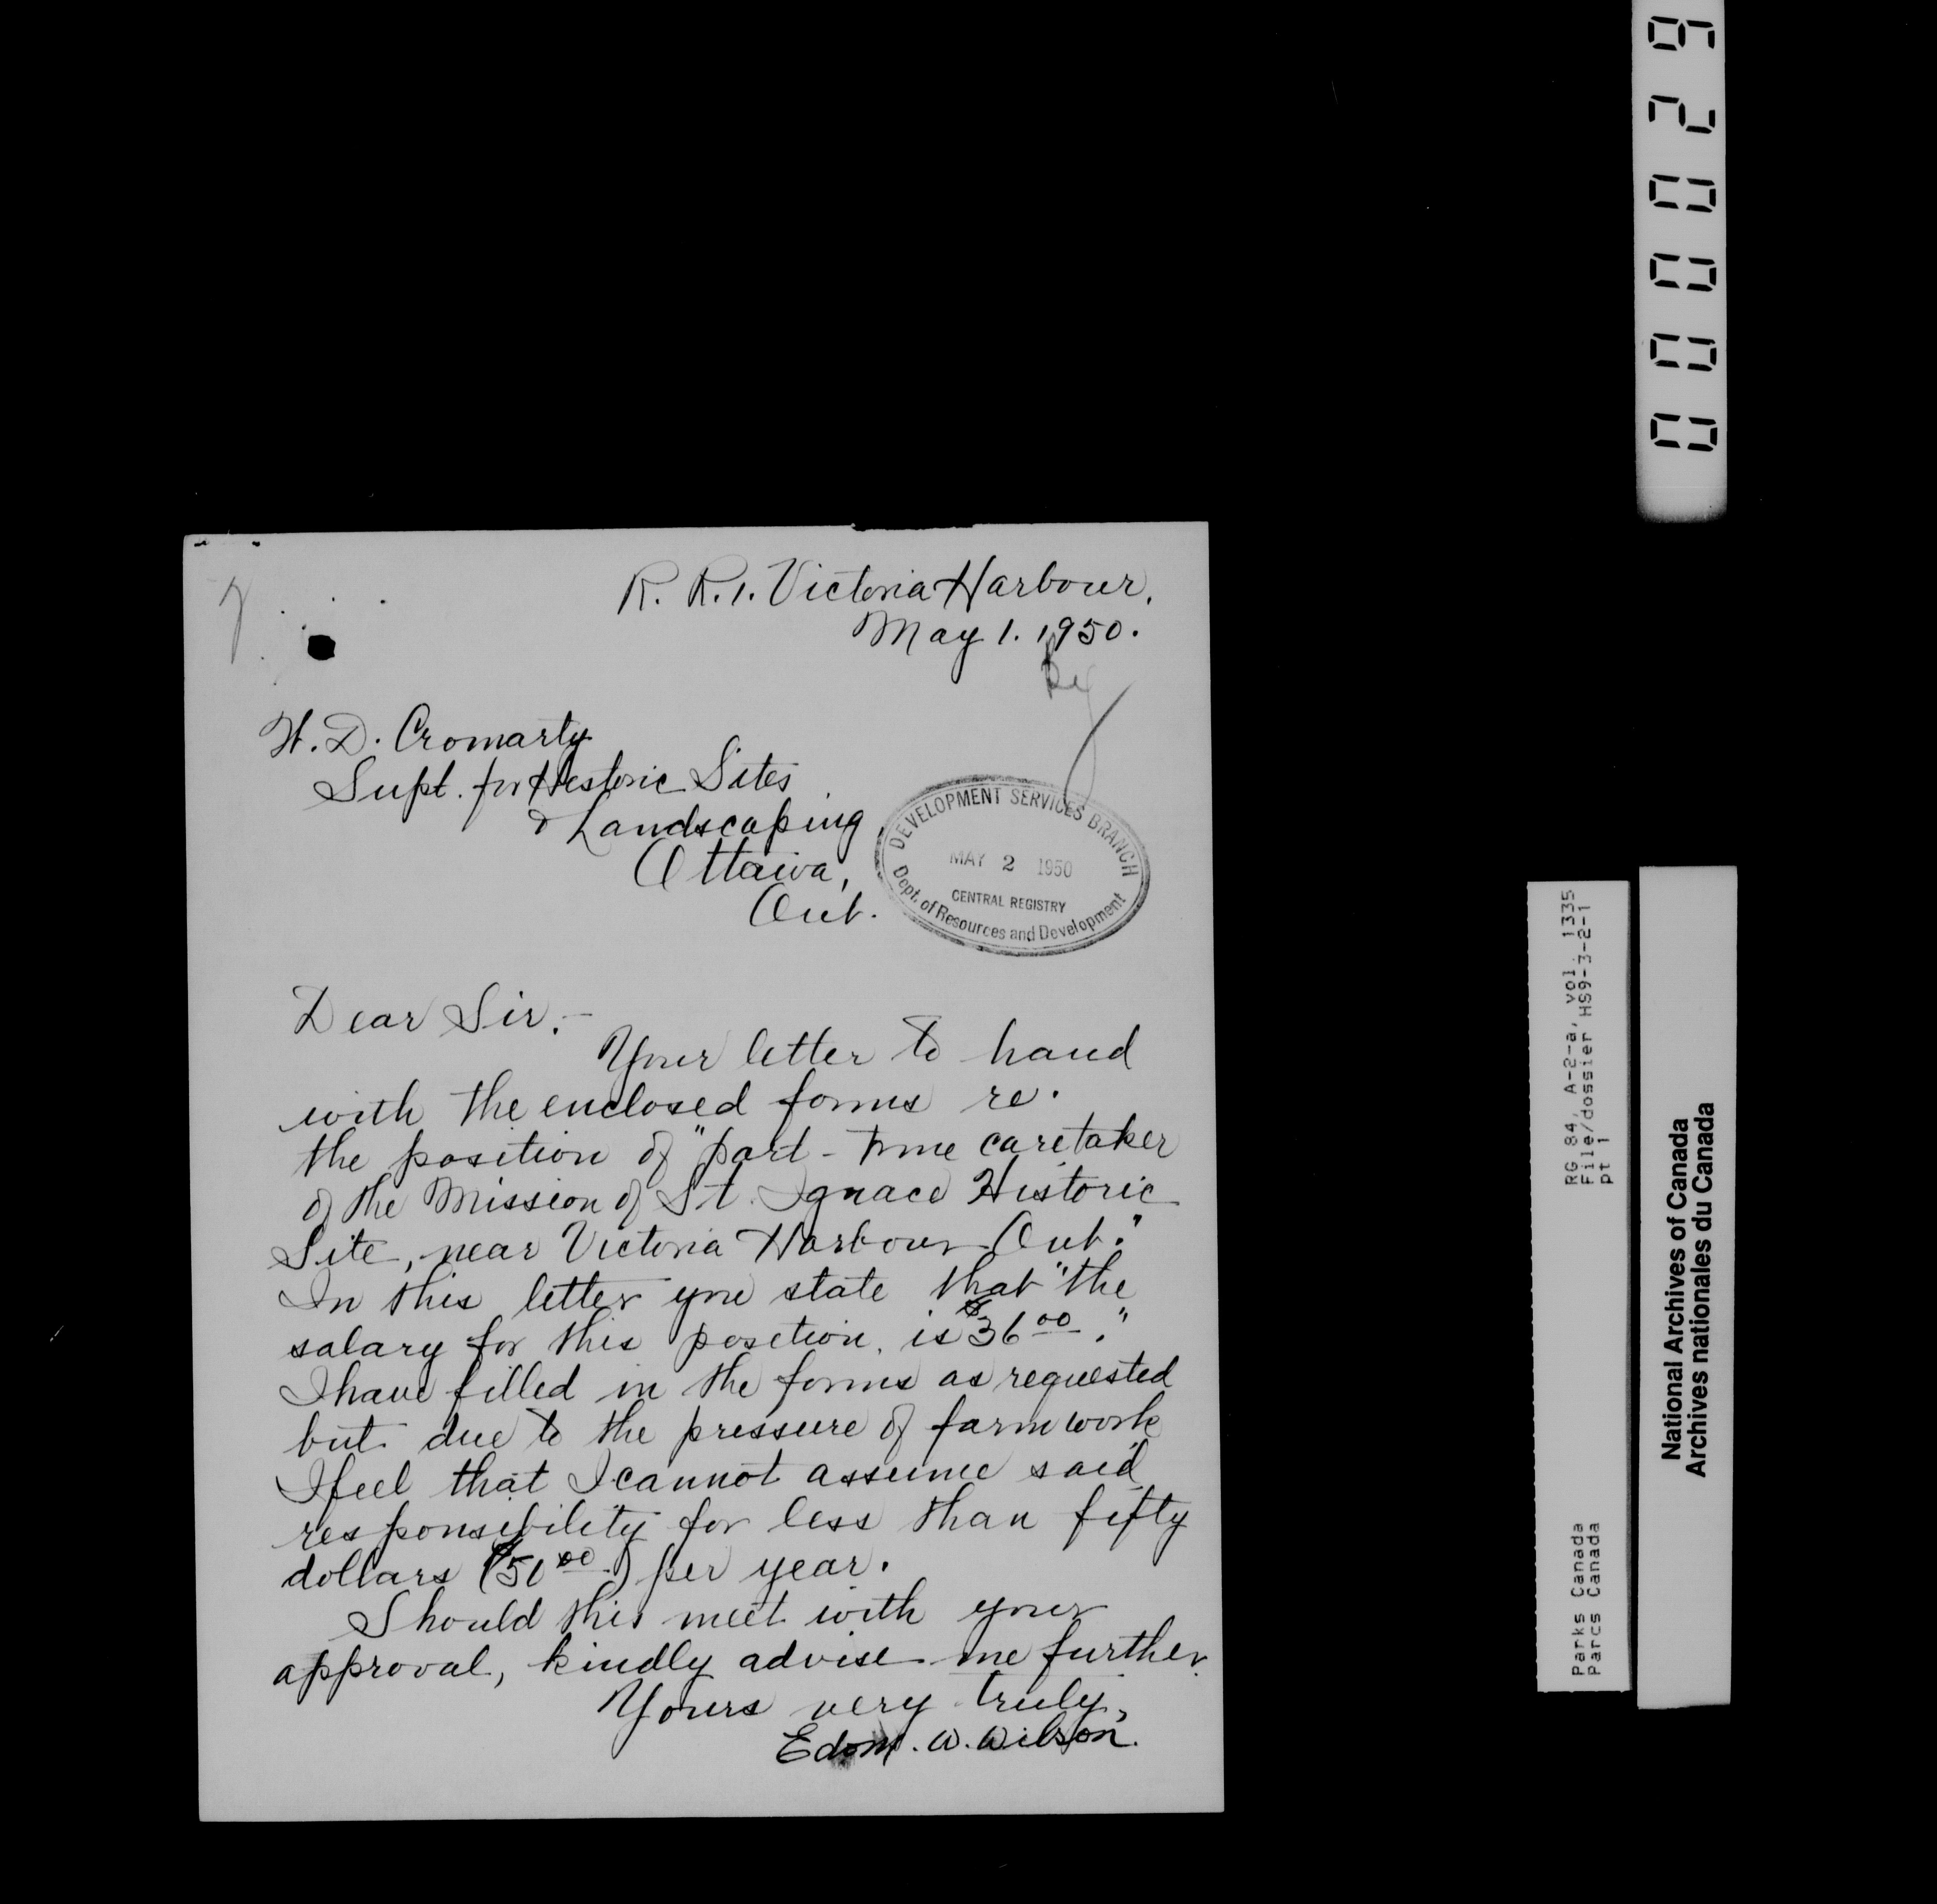 R. R. 1. Victoria Harbour,
May 1. 1950.
W. D. Cromarty
Supt. for Historic Sites
& Landscaping
Ottawa,
Ont.
DEVELOPMENT SERVICES BRANCH
MAY 2 1950
CENTRAL REGISTRY
Dept. of Resources and Development
Dear Sir:-
Your letter to hand
with the enclosed forms re.
the position of "part-time caretaker
of the Mission of St. Ignace Historic
Site, near Victoria Harbour Ont."
In this letter you state that "the
salary for this position, is $36.00."
I have filled in the forms as requested
but due to the pressure of farm work
I feel that I cannot assume said
responsibility for less than fifty
dollars ($50.00) per year.
Should this meet with your
approval, kindly advise me further.
Yours very truly,
Edom. W. Wilson.
000029
RG 84, A-2-a, vol. 1335
File/dossier HS9-3-2-1
pt 1
Parks Canada
Parcs Canada
National Archives of Canada
Archives nationales du Canada